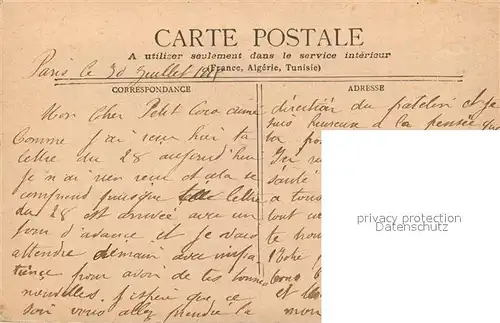 CARTE POSTALE
A utiliser seulement dans le service intérieur
(France, Algérie, Tunisie)
Paris le 30 Juillet
CORRESPONDANCE
Mon Cher Petit Coco aimé
Comme j'ai reçu hier ta
lettre du 28 aujourd'hui
je n'ai rien reçu et cela se
comprend puisque lettre
du 28 est arrivée avec un
jour d'avance et je vais
attendre demain avec impa
tience pour avoir de tes bonnes
nouvelles. J'espère que ce
soir vous allez prendre la
ADRESSE
direction du patelin et je
suis heureux à la pensée que
ta
santé
a tous
tout
te
et
mon
privacy protection
Datenschutz